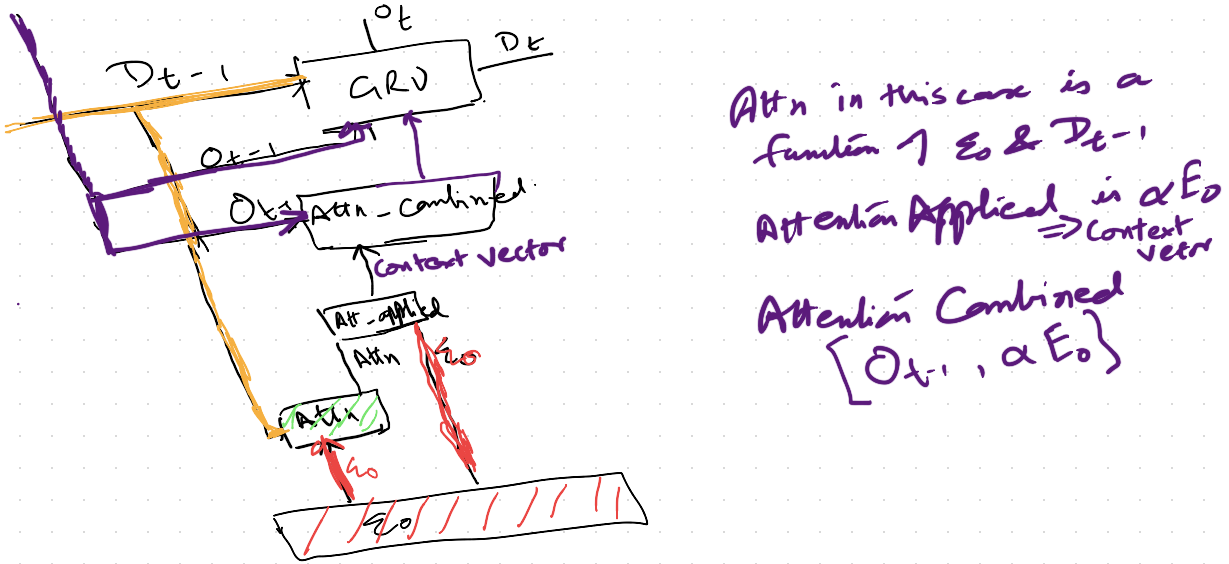 Ot
Dt
Dt-1
GRU
Ot-1
Ot-1
Attn-Combined.
Context vector
Att-applied
Attn
εo
Attn
εo
εo
Attn in this case is a
function of εo & Dt-1
Attention Applied is αEo
=> Context
vector
Attention Combined
[Ot-1, αEo]